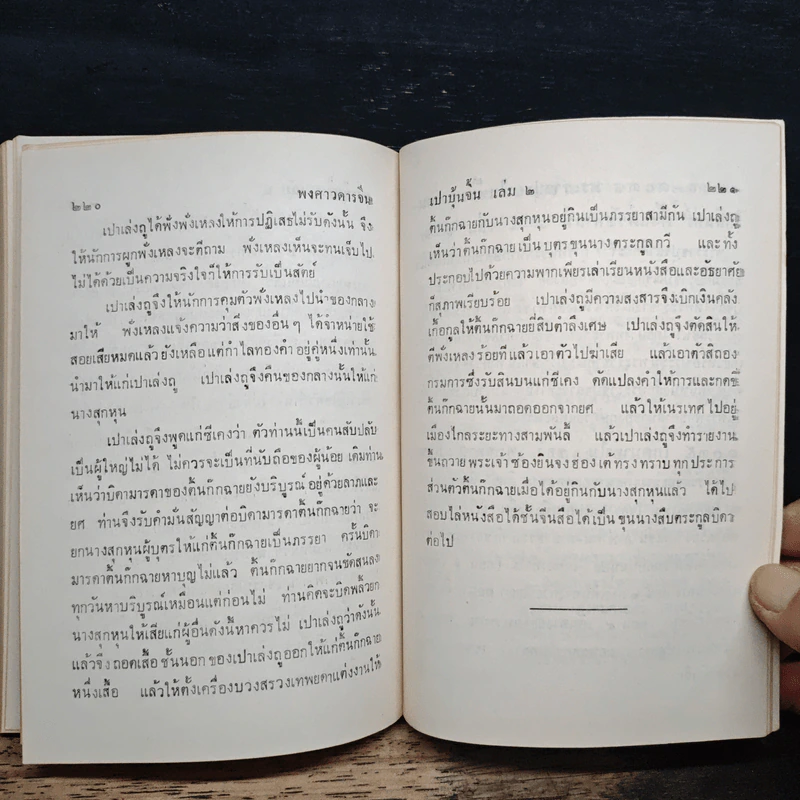 ๒๒๐ พงศาวดารจีน
เปาเล่งถูได้ฟังพั่งเหลงให้การปฏิเสธไม่รับดังนั้น จึง
ให้นักการผูกพั่งเหลงจะตีถาม พั่งเหลงเห็นจะทนเจ็บไป
ไม่ได้ด้วยเป็นความจริงใจก็ให้การรับเป็นสัตย์
เปาเล่งถูจึงให้นักการคุมตัวพั่งเหลงไปนำของกลาง
มาให้ พั่งเหลงแจ้งความว่าสิ่งของอื่น ๆ ได้จำหน่ายใช้
สอยเสียหมดแล้ว ยังเหลือแต่กำไลทองคำ อยู่คู่หนึ่งเท่านั้น
นำมาให้แก่เปาเล่งถู เปาเล่งถูจึงคืนของกลางนั้นให้แก่
นางสุกหุน
เปาเล่งถูจึงพูดแก่ซีเคงว่า ตัวท่านนี้เป็นคนสับปลับ
เป็นผู้ใหญ่ไม่ได้ ไม่ควรจะเป็นที่นับถือของผู้น้อย เดิมท่าน
เห็นว่าบิดามารดาของต้นก๊กฉายยังบริบูรณ์ อยู่ด้วยลาภและ
ยศ ท่านจึงรับคำมั่นสัญญาต่อบิดามารดาต้นก๊กฉายว่า จะ
ยกนางสุกหุนผู้บุตรให้แก่ต้นก๊กฉายเป็นภรรยา ครั้นบิดา
มารดาต้นก๊กฉายหาบุญไม่แล้ว ต้นก๊กฉายยากจนขัดสนลง
ทุกวันหาบริบูรณ์เหมือนแต่ก่อนไม่ ท่านคิดจะบิดพลิ้วยก
นางสุกหุนให้เสียแก่ผู้อื่นดังนี้หาควรไม่ เปาเล่งถูว่าดังนั้น
แล้วจึง ถอดเสื้อ ชั้นนอก ของเปาเล่งถู ออกให้แก่ต้นก๊กฉาย
หนึ่งเสื้อ แล้วให้ตั้งเครื่องบวงสรวงเทพยดาแต่งงานให้
เปาบุ้นจิ้น เล่ม ๒ ๒๒๑
ต้นก๊กฉายกับนางสุกหุนอยู่กินเป็นภรรยาสามีกัน เปาเล่งถู
เห็นว่าต้นก๊กฉายเป็น บุตร ขุนนาง ตระกูลกวี และ ทั้ง
ประกอบไปด้วยความพากเพียรเล่าเรียนหนังสือและอัธยาศัย
ก็สุภาพเรียบร้อย เปาเล่งถูมีความสงสารจึงเบิกเงินคลัง
เกื้อกูลให้ต้นก๊กฉายยี่สิบตำลึงเศษ เปาเล่งถูจึงตัดสินให้
ตีพั่งเหลง ร้อยที แล้วเอา ตัวไปฆ่าเสีย แล้วเอาตัวสิถอง
กรมการซึ่งรับสินบนแก่ซีเคง ดัดแปลงคำให้การและกดขี่
ต้นก๊กฉายนั้นมาถอดออกจากยศ แล้วให้เนรเทศไปอยู่
เมืองไกลระยะทางสามพันลี้ แล้วเปาเล่งถูจึงทำรายงาน
ขึ้นถวาย พระเจ้า ซ้องยินจงฮ่องเต้ ทรง ทราบ ทุก ประการ
ส่วนตัวต้นก๊กฉายเมื่อได้อยู่กินกับนางสุกหุนแล้ว ได้ไป
สอบไล่หนังสือได้ชั้นจีนสือได้เป็น ขุนนางสืบตระกูลบิดา
ต่อไป